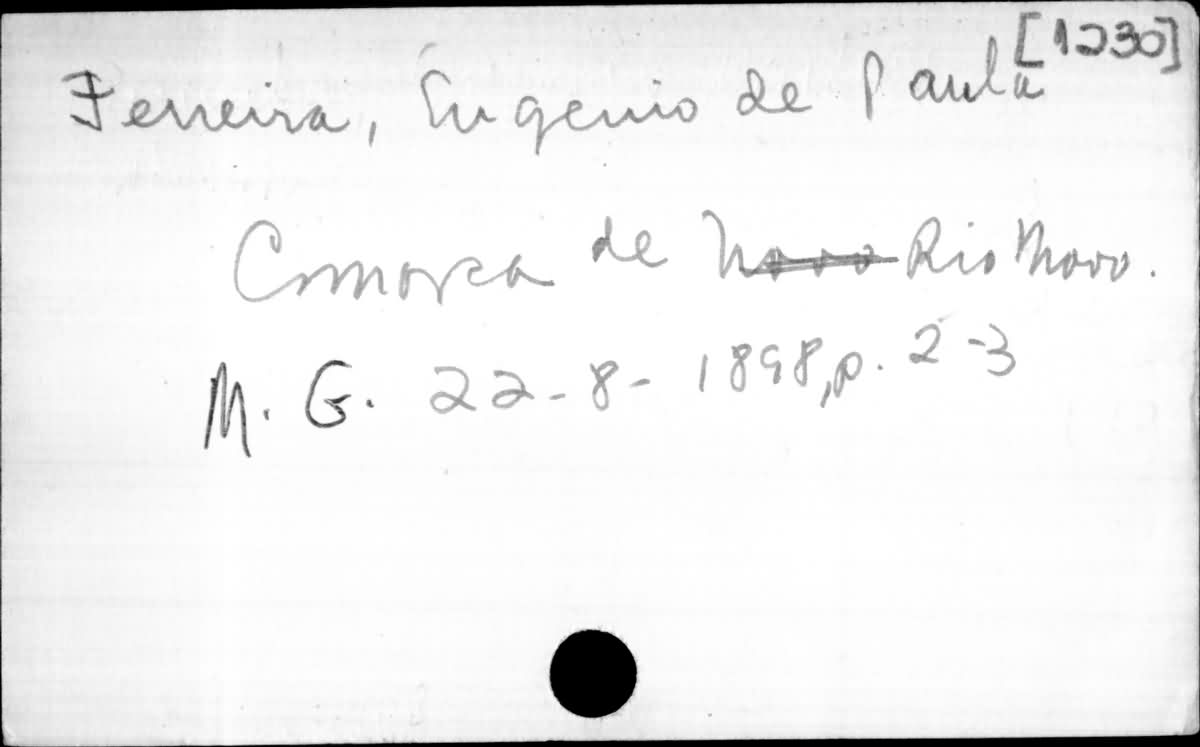 [1230]
Ferreira, Eugenio de Paula
Comarca de Novo Rio Novo.
M. G. 22-8-1898, p. 2-3